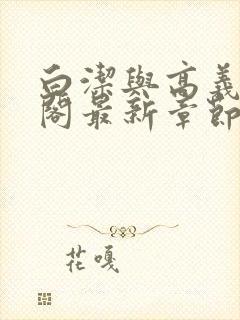 白潔與高義
閣最新章節
花嘎